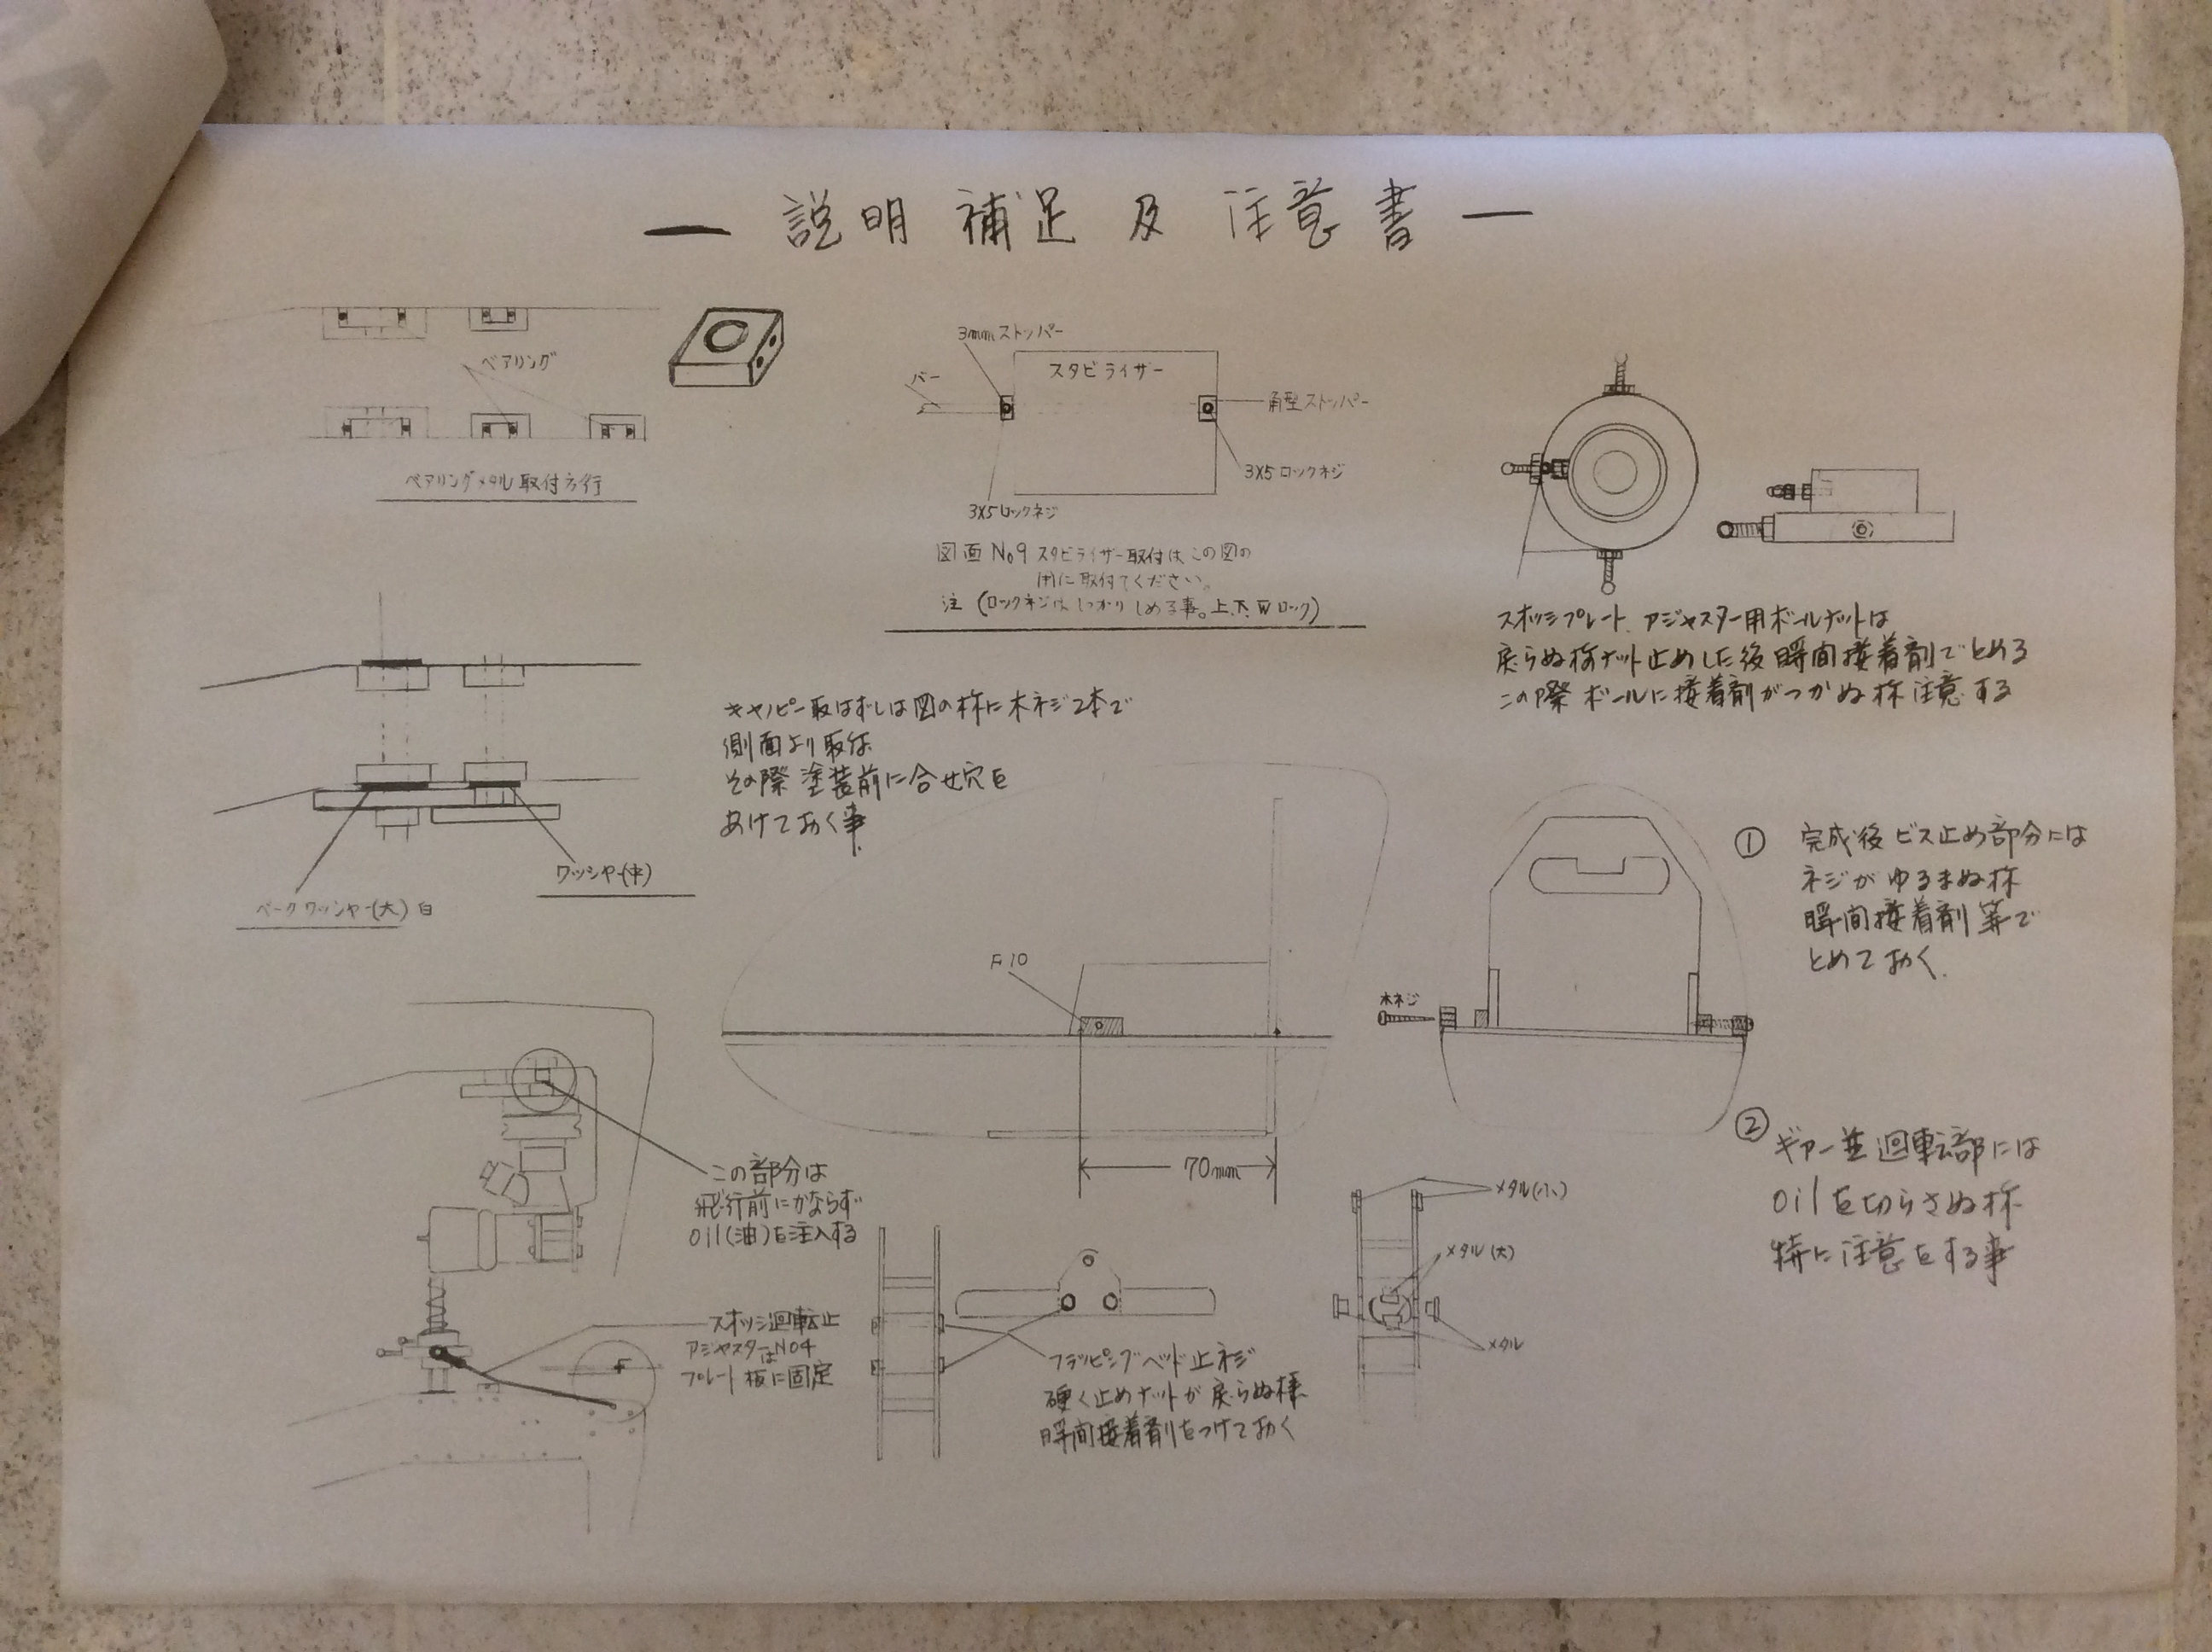 — 説明 補足 及 注意書 —
ベアリング
ベアリングメタル取付方行
3mmストッパー
バー
スタビライザー
角型ストッパー
3X5ロックネジ
3X5ロックネジ
図面 No9 スタビライザー取付は、この図の
様に取付てください。
注 (ロックネジはしっかりしめる事。上、下、Wロック)
スオッシプレート、アジャスター用ボールナットは
戻らぬ様ナット止めした後瞬間接着剤でとめる
この際 ボールに接着剤がつかぬ様注意する
ワッシャー(中)
ベークワッシャー(大) 白
キャノピー取はずしは図の様に木ネジ2本で
側面より取付
その際 塗装前に合せ穴を
あけておく事
F10
70mm
木ネジ
① 完成後ビス止め部分には
ネジがゆるまぬ様
瞬間接着剤等で
とめておく.
② ギアー並廻転部には
oilを切らさぬ様
特に注意をする事
この部分は
飛行前にかならず
oil(油)を注入する
スオッシ廻転止
アジャスターはNO4
プレート板に固定
フラッピングヘッド止ネジ
硬く止めナットが戻らぬ様
瞬間接着剤をつけておく
メタル(小)
メタル(大)
メタル